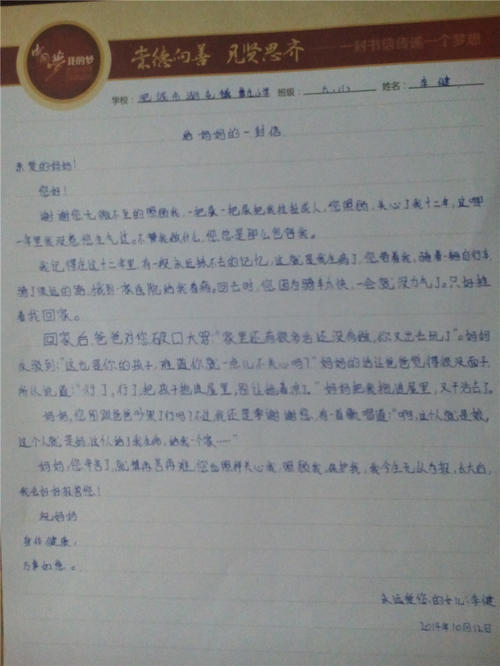 中国梦 我的梦 崇德向善 见贤思齐 一封书信传递一个梦想
学校: 肥城市湖屯镇 小学 班级: 六.(1) 姓名: 李健
给妈妈的一封信
亲爱的妈妈!
您好!
谢谢您无微不至的照顾我,一把屎一把尿把我拉扯成人,您照顾、关心了我十二年,这哪
一年里我没惹您生气过。不管我做什么,您总是那么包容我。
我记得在这十二年里,有一段永远抹不去的记忆,这就是我生病了,您带着我,骑着一辆自行车
骑了很远的路,找到一家医院给我看病。回去时,您因为骑车太快,一会就没力气了。只好推
着我回家。
回家后,爸爸对您破口大骂:“家里还有很多活还没有做,你又出去玩了”。妈妈
反驳到:“这也是你的孩子,难道你就一点儿不关心吗?”妈妈的话让爸爸觉得很没面子,
所以说道:“行了,行了,把孩子抱进屋里,别让她着凉。”妈妈把我抱进屋里,又干活去了。
妈妈,您别跟爸爸吵架了行吗?不过我还是要谢谢您,有一首歌唱道:“啊,这个人就是娘,
这个人就是妈,这个人给了我生命,给我一个家……”
妈妈,您辛苦了,就算再苦再难,您也照样关心我,照顾我,保护我,我今生无以为报,长大后,
我会好好报答您!
祝妈妈
身体健康,
万事如意。
永远爱您的女儿:李健
2014年10月12日